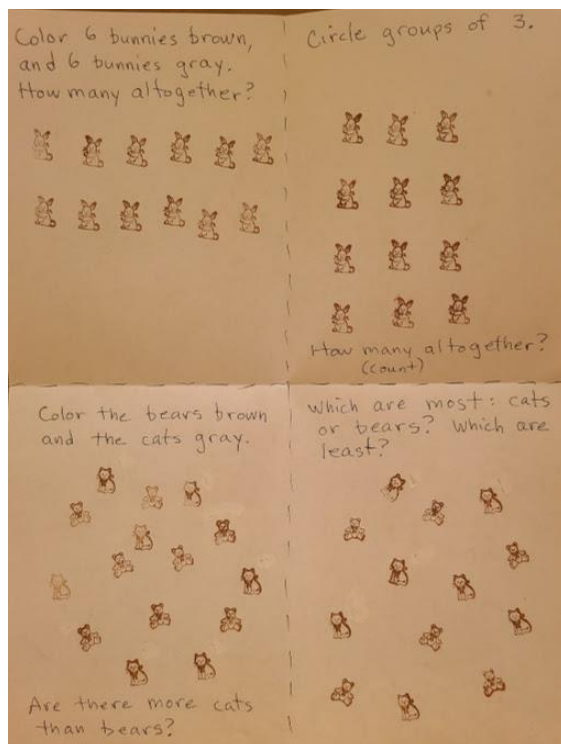 Color 6 bunnies brown,
and 6 bunnies gray.
How many altogether?
Circle groups of 3.
How many altogether?
(count)
Color the bears brown
and the cats gray.
Are there more cats
than bears?
Which are most: cats
or bears? Which are
least?